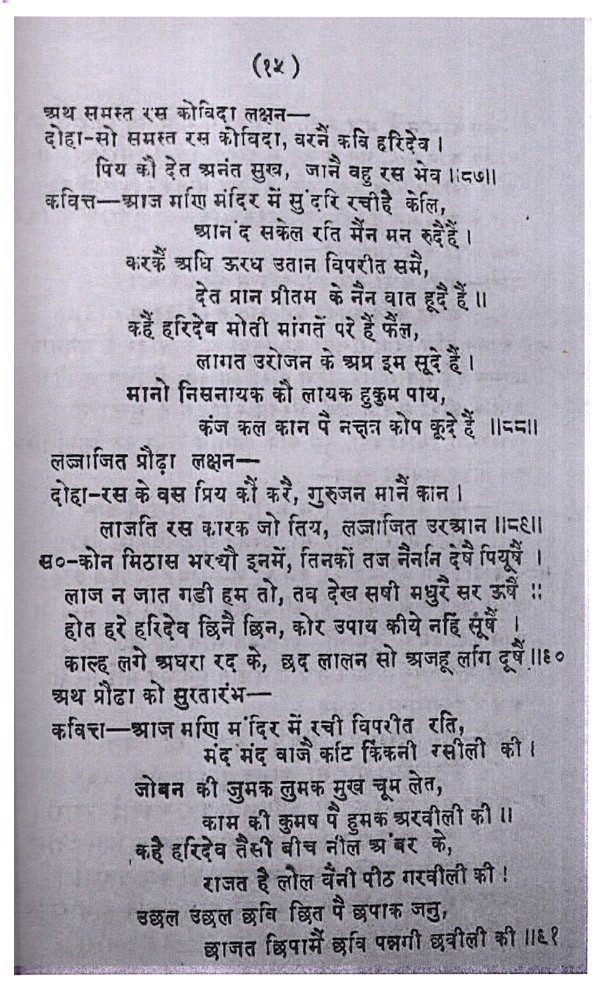 (१५)
अथ समस्त रस कोविदा लक्षन—
दोहा-सो समस्त रस कोविदा, वरनैं कवि हरिदेव ।
पिय कौ देत अनंत सुख, जानै वहु रस भेव ॥८७॥
कवित्त—आज मणि मंदिर में सुंदरि रचीहै केलि,
आनंद सकेल रति मैंन मन रुदैहैं ।
करकैं अधि ऊरध उतान विपरीत समै,
देत प्रान प्रीतम के नैन वात हूदै हैं ॥
कहैं हरिदेव मोती मांगतें परे हैं फैंल,
लागत उरोजन के अग्र इम सूदे हैं ।
मानो निसनायक कौ लायक हुकुम पाय,
कंज कल कान पै नक्षत्र कोप कूदे हैं ॥८८॥
लज्जाजित प्रौढ़ा लक्षन—
दोहा-रस के वस प्रिय कौं करै, गुरुजन मानैं कान ।
लाजति रस कारक जो तिय, लज्जाजित उरआन ॥८९॥
स०-कोन मिठास भरयौ इनमें, तिनकों तज नैंननि देषै पियूषैं ।
लाज न जात गडी हम तो, तव देख सषी मधुरै सर ऊषैं ॥
होत हरे हरिदेव छिनै छिन, कोर उपाय कीये नहिं सूंषैं ।
काल्ह लगे अघरा रद के, छद लालन सो अजहू लगि दूषैं ॥९०
अथ प्रौढा को सुरतारंभ—
कवित्त—आज मणि मंदिर में रची विपरीत रति,
मंद मंद वाजै कटि किंकनी रसीली की ।
जोबन की जुमक लुमक मुख चूम लेत,
काम की कुमष पै हुमक अरवीली की ॥
कहै हरिदेव तैसी बीच नील अंबर के,
राजत है लोल वैंनी पीठ गरवीली की !
उछल उछल छवि छित पै छपाक जनु,
छाजत छिपामैं छवि पन्नगी छवीली की ॥९१